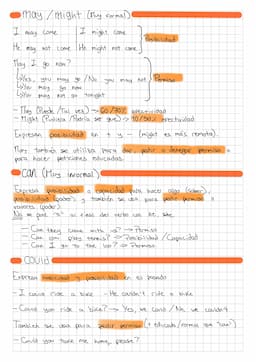 May / Might (Muy formal)
I may come I might come
He may not come He might not come
Posibilidad
May I go now?
Yes, you may go / No you may not
Permiso
You may go now
may not go tonight
May (Puede / Tal vez)
Might (Pudiera / Podría se que)
Expresan posibilidad en + y - (might es más remota).
May también se utiliza para dar, pedir o denegar permiso o
para hacer peticiones educadas.
Can (Muy informal)
Expresa posibilidad o capacidad para hacer algo (saber),
posibilidad (poder) y también se usa para pedir permiso o
(poder)
No se pone "s" al final del verbo con he, she
Can they come with us? → Permiso
Can you play tennis? → Posibilidad / Capacidad
Can I go to the → Permiso
Could
Expresa capacidad y posibilidad en el pasado
I could ride a bike - He couldn't ride a bike
Could you ride a bike? → Yes, we could / No, we couldn't
También se usa para pedir permiso (+ educada / formal que "can")
Could you take me home, please?